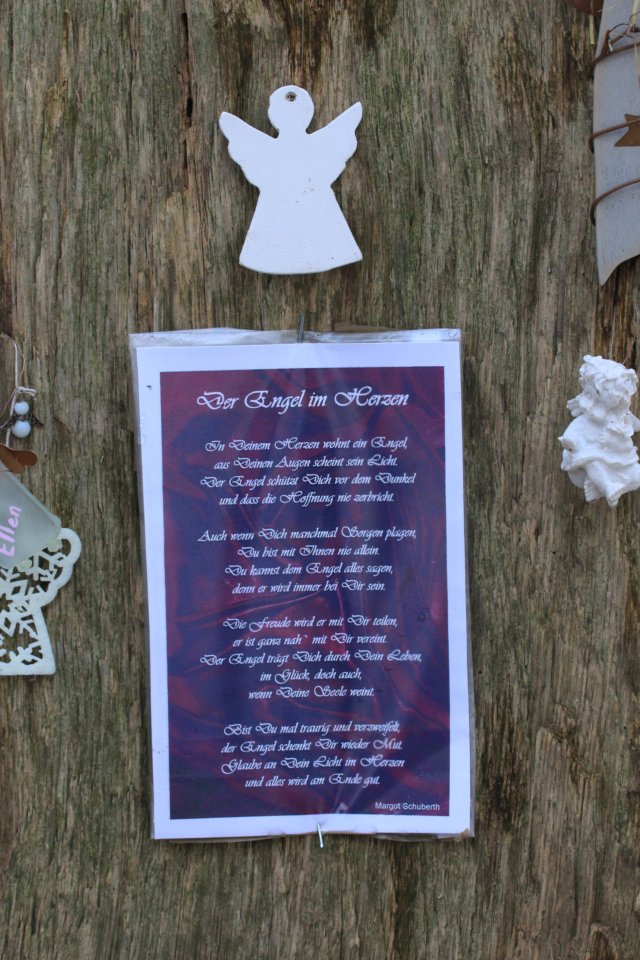 Der Engel im Herzen
In Deinem Herzen wohnt ein Engel,
aus Deinen Augen scheint sein Licht.
Der Engel schützt Dich vor dem Dunkel
und dass die Hoffnung nie zerbricht.
Auch wenn Dich manchmal Sorgen plagen,
Du bist mit Ihnen nie allein.
Du kannst dem Engel alles sagen,
denn er wird immer bei Dir sein.
Die Freude wird er mit Dir teilen,
er ist ganz nah` mit Dir vereint.
Der Engel trägt Dich durch Dein Leben,
im Glück, doch auch,
wenn Deine Seele weint.
Bist Du mal traurig und verzweifelt,
der Engel schenkt Dir wieder Mut.
Glaube an Dein Licht im Herzen
und alles wird am Ende gut.
Margot Schuberth
Ellen